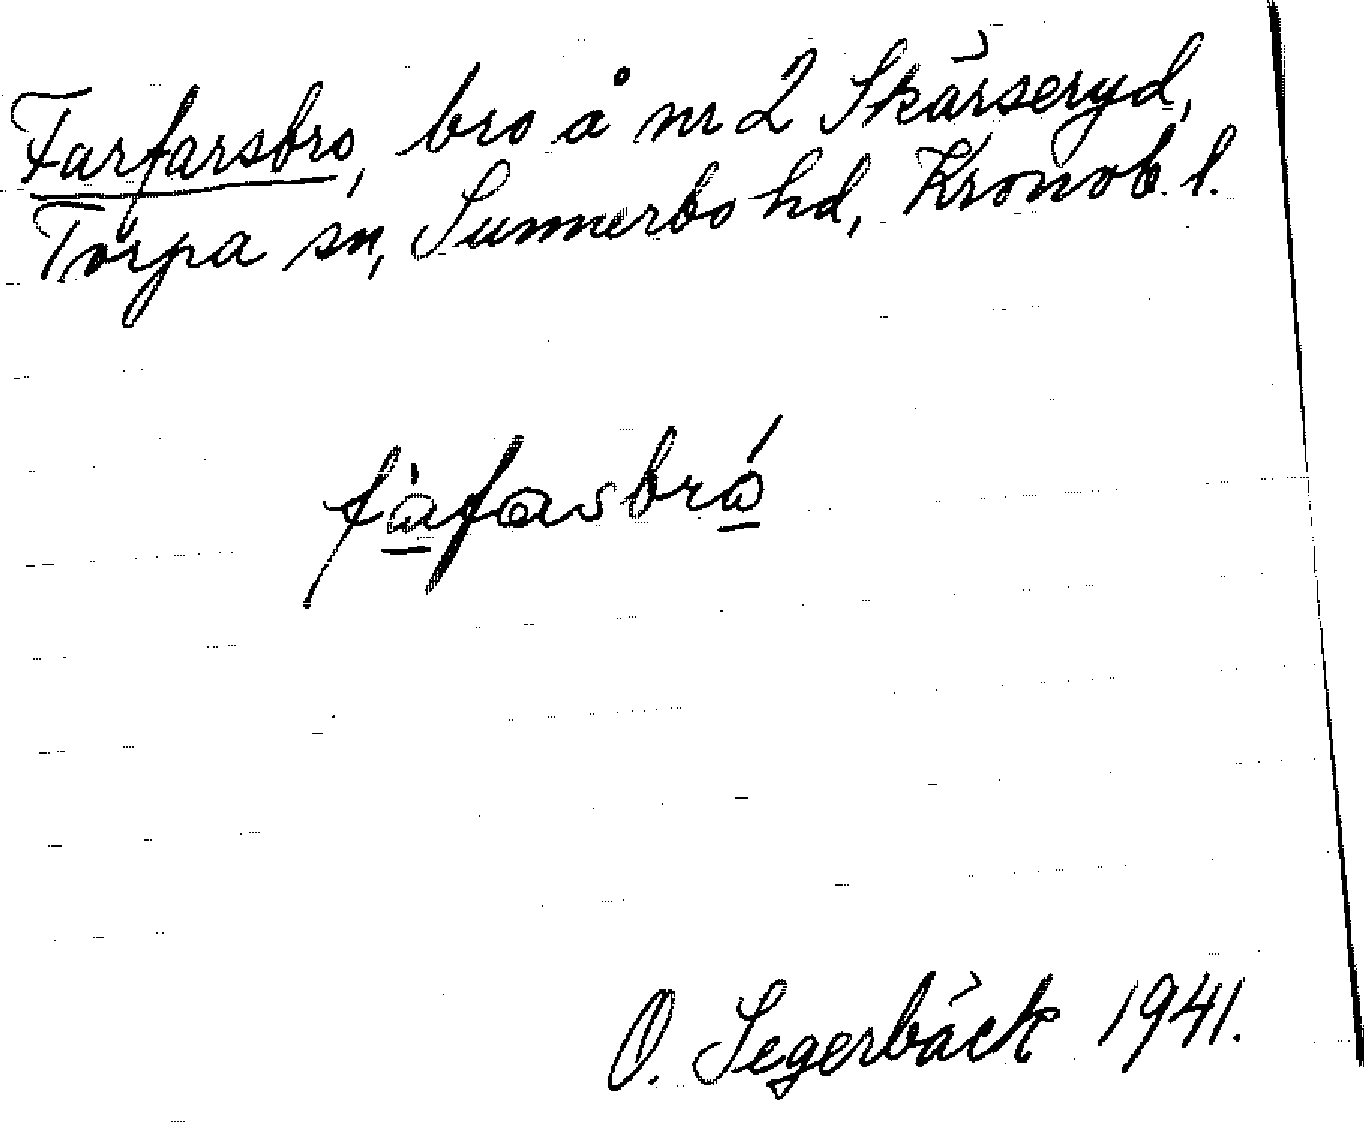 Farfarsbro, bro å nr 2 Skärseryd,
Torpa sn, Sunnerbo hd, Kronob. l.
fàfasbró
O. Segerbäck 1941.